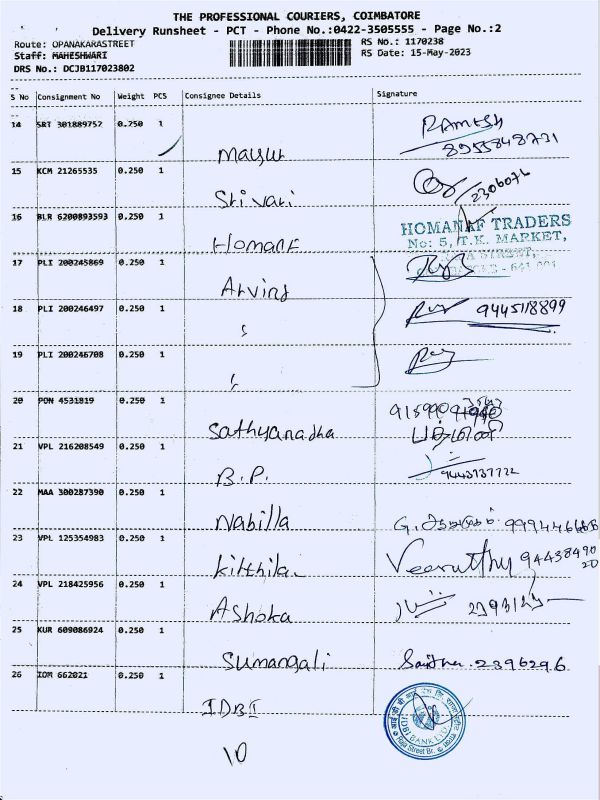 THE PROFESSIONAL COURIERS, COIMBATORE
Delivery Runsheet - PCT - Phone No.:0422-3505555 - Page No.:2
Route: OPANAKARASTREET RS No.: 1170238
Staff: MAHESHWARI RS Date: 15-May-2023
DRS No.: DCJB117023802
S No Consignment No Weight PCS Consignee Details Signature
14 SRT 301889752 0.250 1 RAMESH
Mayur 8955848731
15 KCM 21265535 0.250 1
Srivari 2306076
16 BLR 6200893593 0.250 1 HOMANAF TRADERS
Homane No: 5, T.K. MARKET,
17 PLI 200245869 0.250 1 STREET,
Arvind 641 001
18 PLI 200246497 0.250 1 9445118899
19 PLI 200246708 0.250 1
20 PON 4531819 0.250 1
Sathyanadha
21 VPL 216208549 0.250 1
B.P. 9443737722
22 MAA 300287390 0.250 1
Nabilla G.
23 VPL 125354983 0.250 1
24 VPL 218425956 0.250 1
Ashoka
25 KUR 609086924 0.250 1
Sumangali 2396296
26 IOM 662021 0.250 1
IDBI IDBI BANK LTD.
10 Raja Street Br.